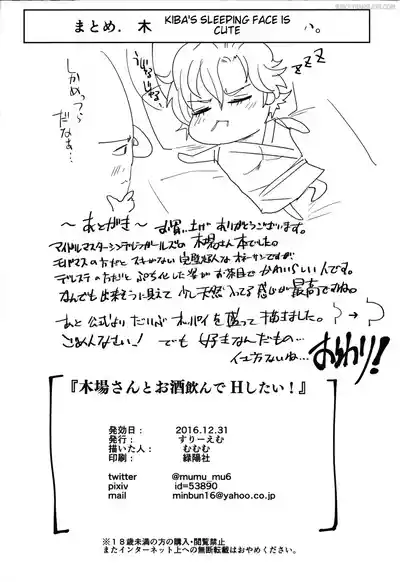 まとめ. 木
KIBA'S SLEEPING FACE IS
CUTE
い。
zzz
しかめっつら
だなぁ…
～あとがき～ お買い上げありがとうございます。
アイドルマスターシンデレラガールズの木場さん本でした。
モバマスの方だとスキがない完璧超人なオーラーですが
デレステの方だと
お茶目でかわいらしい人です。
なんでも出来そうに見えて少し天然入ってる感じが最高ですね。
あと公式よりだいぶオッパイを盛って描きました。
ごめんなさい! でも 好きなんだもの…
仕方ないね…
おわり!
『木場さんとお酒飲んでHしたい!』
発効日： 2016.12.31
発行： すりーえむ
描いた人： むむむ
印刷： 緑陽社
twitter @mumu_mu6
pixiv id=53890
mail minbun16@yahoo.co.jp
※18歳未満の方の購入・閲覧禁止
またインターネット上への無断転載はおやめください。